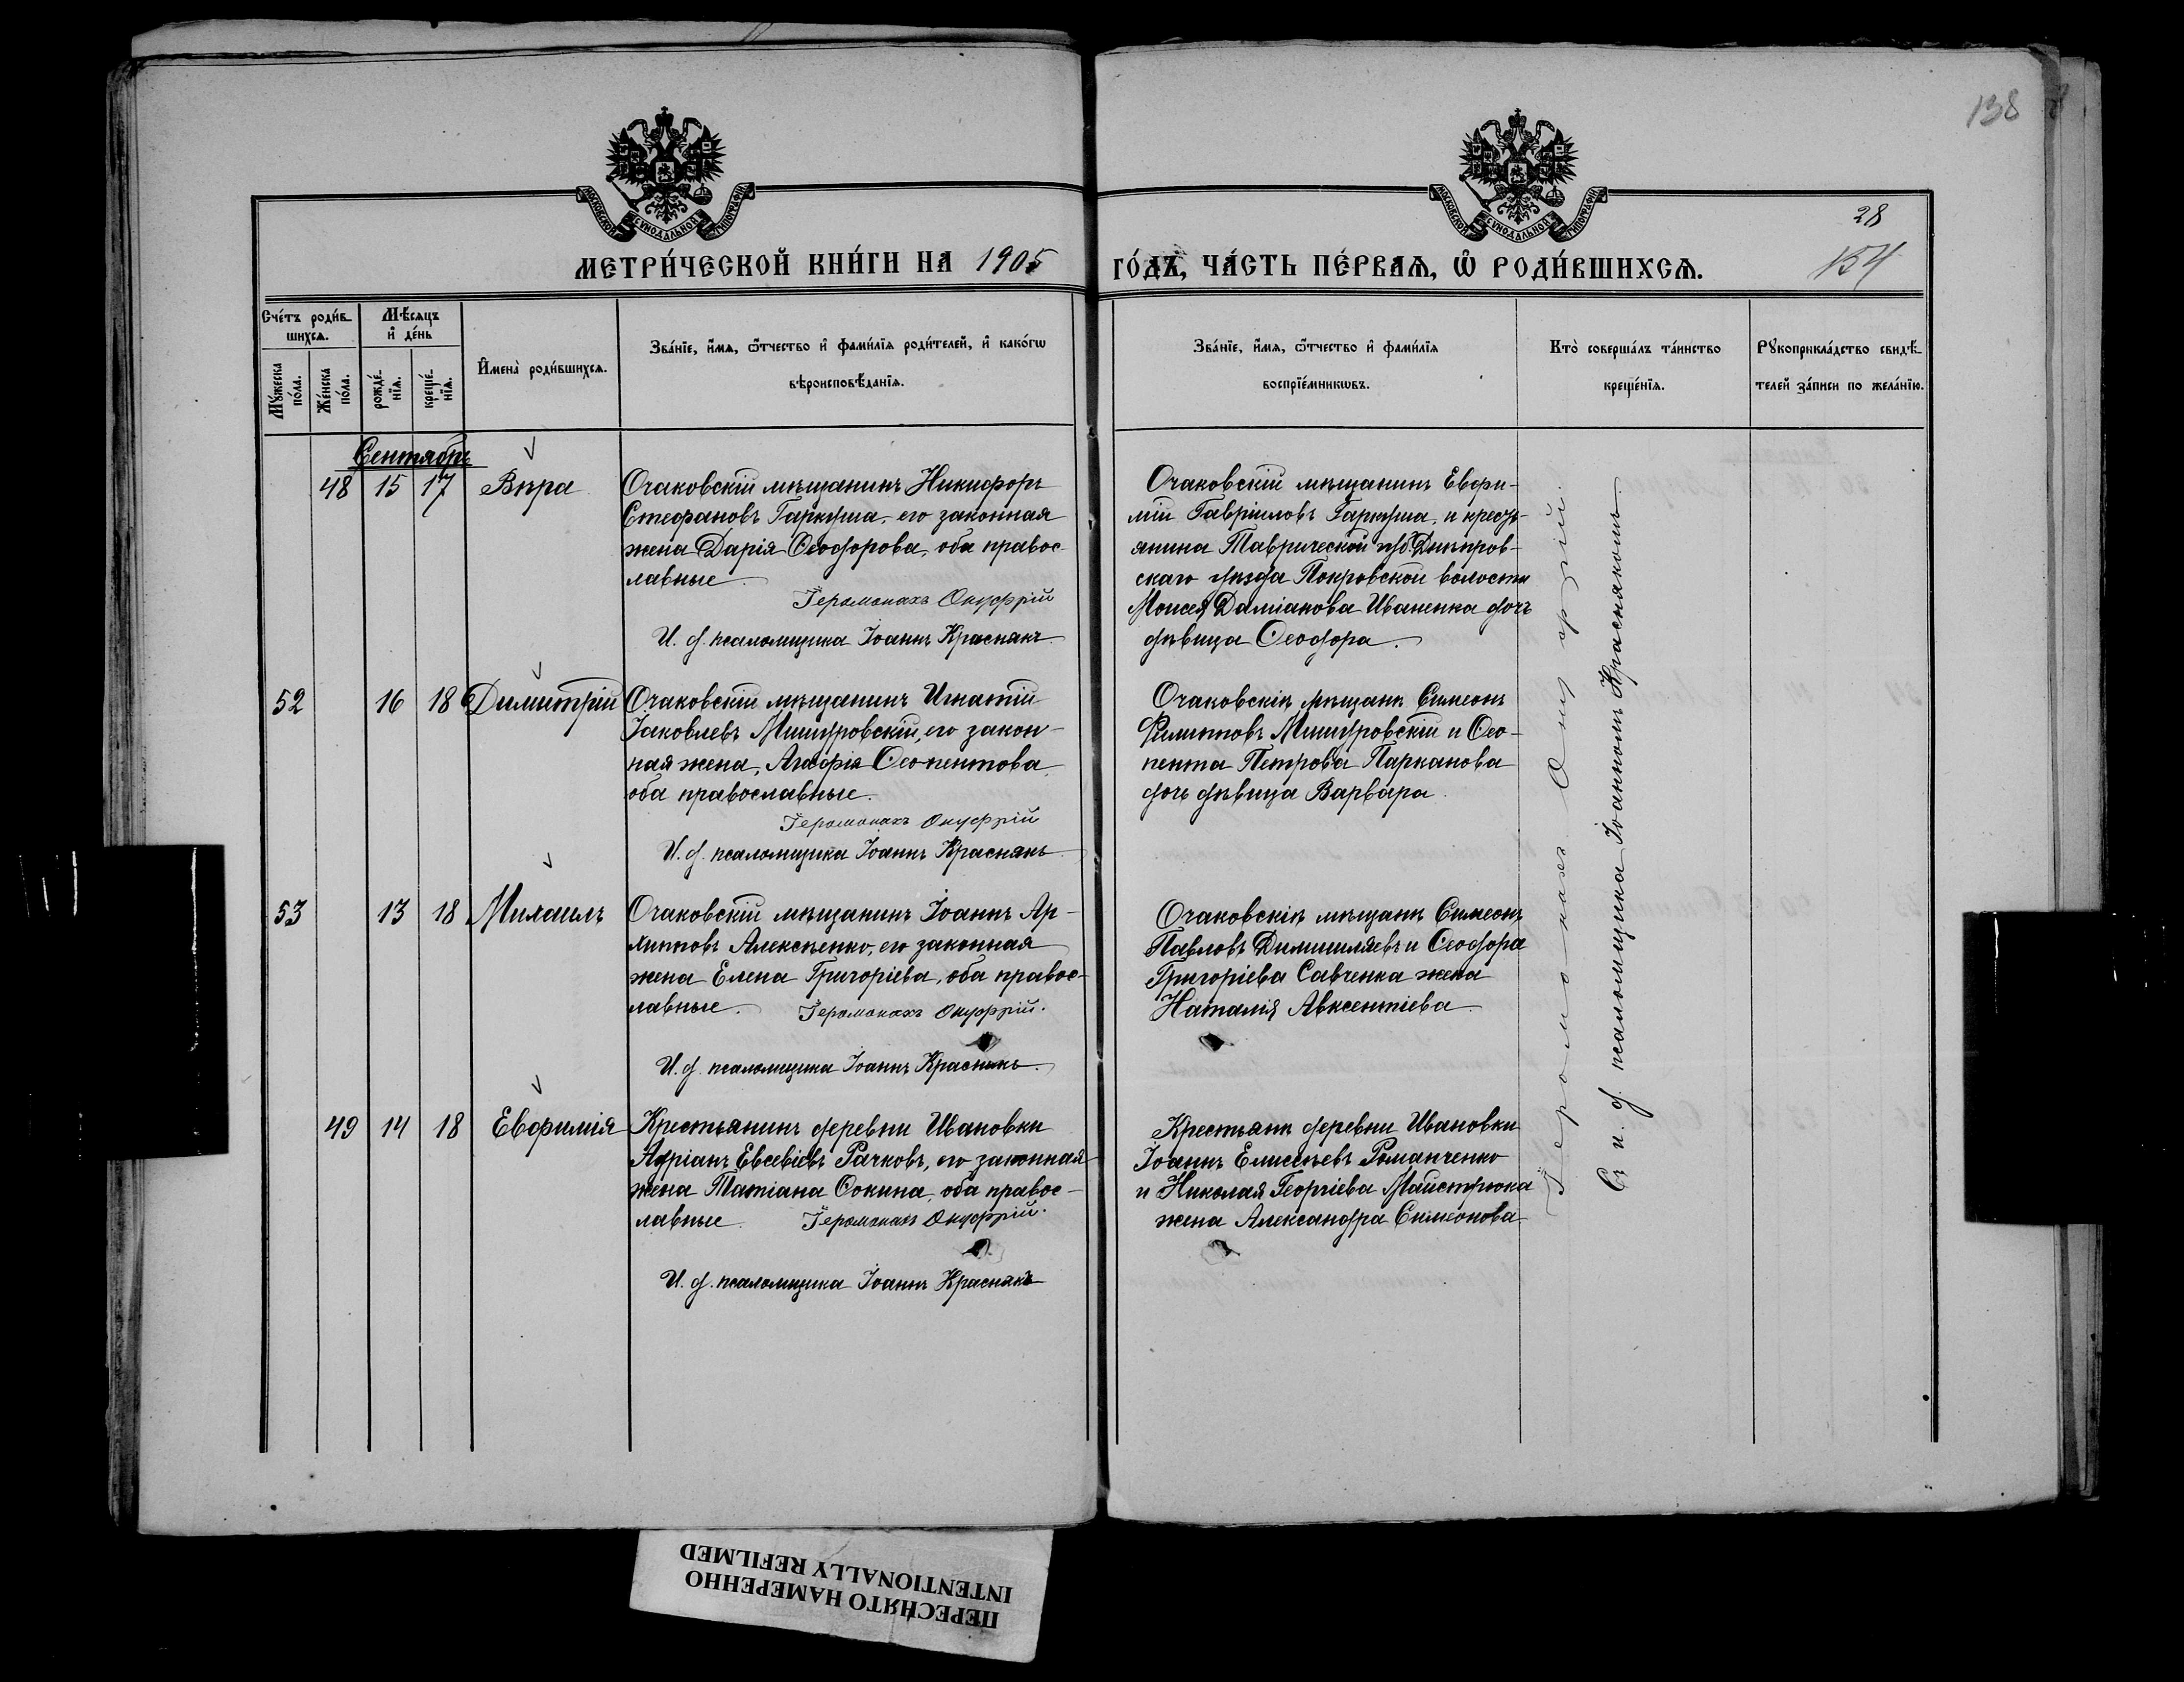 138
28
154
МОСКОВСКОЙ СУНОДАЛЬНОЙ ТИПОГРАФІИ
МОСКОВСКОЙ СУНОДАЛЬНОЙ ТИПОГРАФІИ
МЕТРИ́ЧЕСКОЙ КНИ́ГИ НА 1905 ГО́ДЪ, ЧА́СТЬ ПЕ́РВАЯ, Ѡ РОДИ́ВШИХСѦ.
Сче́тъ роди́в-
шихсѧ.
Мѣ́сяцъ
и де́нь
Мꙋ́жеска
по́ла.
Же́нска
по́ла.
рожде́-
нїѧ.
креще́-
нїѧ.
Имена̀ роди́вшихсѧ.
Зва́нїе, и́мѧ, ѻ҆́тчество и҆ фами́лїѧ роди́телей, и҆ како́гѡ
вѣроисповѣ́данїѧ.
Зва́нїе, и́мѧ, ѻ҆́тчество и҆ фами́лїѧ
воспрїе́мникѡвъ.
Кто̀ соверша́лъ та́инство
креще́нїѧ.
Рꙋкоприкла́дство свидѣ́-
телей за́писи по жела́нїю.
Сентябрь
48 15 17 Вѣра
Очаковскій мѣщанинъ Никифоръ
Стефановъ Гаркуша, его законная
жена Дарія Ѳеодорова, оба правос-
лавные
Іеромонахъ Онуфрій
И. д. псаломщика Іоаннъ Краснякъ
Очаковскій мѣщанинъ Евфи-
мій Гавріиловъ Гаркуша, и кресть-
янина Таврической губ. Днѣпров-
скаго уѣзда Покровской волости
Моисея Даміанова Иваненка дочь
дѣвица Ѳеодора.
52 16 18 Димитрій
Очаковскій мѣщанинъ Игнатій
Іаковлевъ Мишуровскій, его закон-
ная жена, Агафія Ѳеопентова
оба православные.
Іеромонахъ Онуфрій
И. д. псаломщика Іоаннъ Краснякъ
Очаковскіе мѣщане Симеонъ
Филипповъ Мишуровскій и Ѳео-
пента Петрова Парканова
дочь дѣвица Варвара.
53 13 18 Михаилъ
Очаковскій мѣщанинъ Іоаннъ Ар-
хипповъ Алексѣенко, его законная
жена Елена Григоріева, оба правос-
лавные.
Іеромонахъ Онуфрій.
И. д. псаломщика Іоаннъ Краснякъ.
Очаковскіе мѣщане Симеонъ
Павловъ и Ѳеодора
Григоріева Савченка жена
Наталія Авксентіева
49 14 18 Евфимія
Крестьянинъ деревни Ивановки
Адріанъ Евсевіевъ Рачковъ, его законная
жена Татіана Ѳокина, оба правос-
лавные.
Іеромонахъ Онуфрій.
И. д. псаломщика Іоаннъ Краснякъ
Крестьяне деревни Ивановки
Іоаннъ Елисеевъ Романченко
и Николая Георгіева Майстрюка
жена Александра Симеонова
Іеромонахъ Онуфрій.
Съ и. д. псаломщика Іоанномъ Краснякомъ
ПЕРЕСНЯТО НАМЕРЕННО
INTENTIONALLY REFILMED